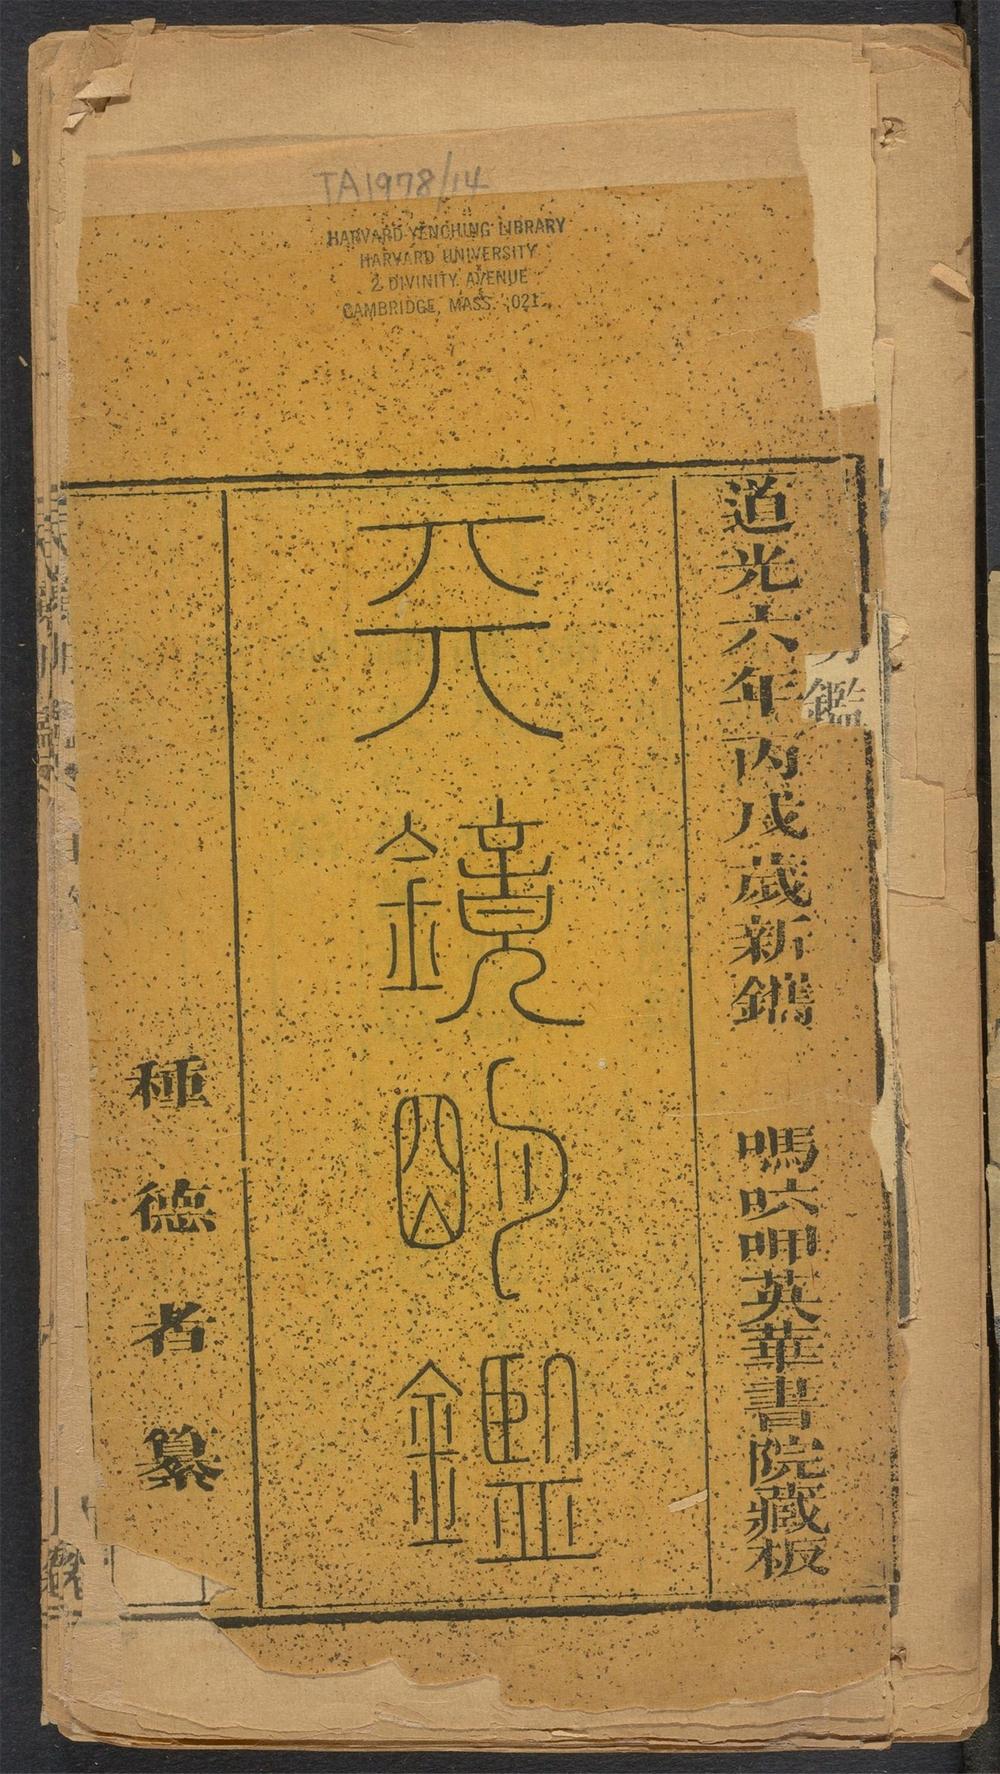 TA1978/14
HARVARD YENCHING LIBRARY
HARVARD UNIVERSITY
2 DIVINITY AVENUE
CAMBRIDGE, MASS. 021
道光六年丙戌歲新鐫 嗎㕸呷英華書院藏板
天鏡明鑑
種德者纂
鑑